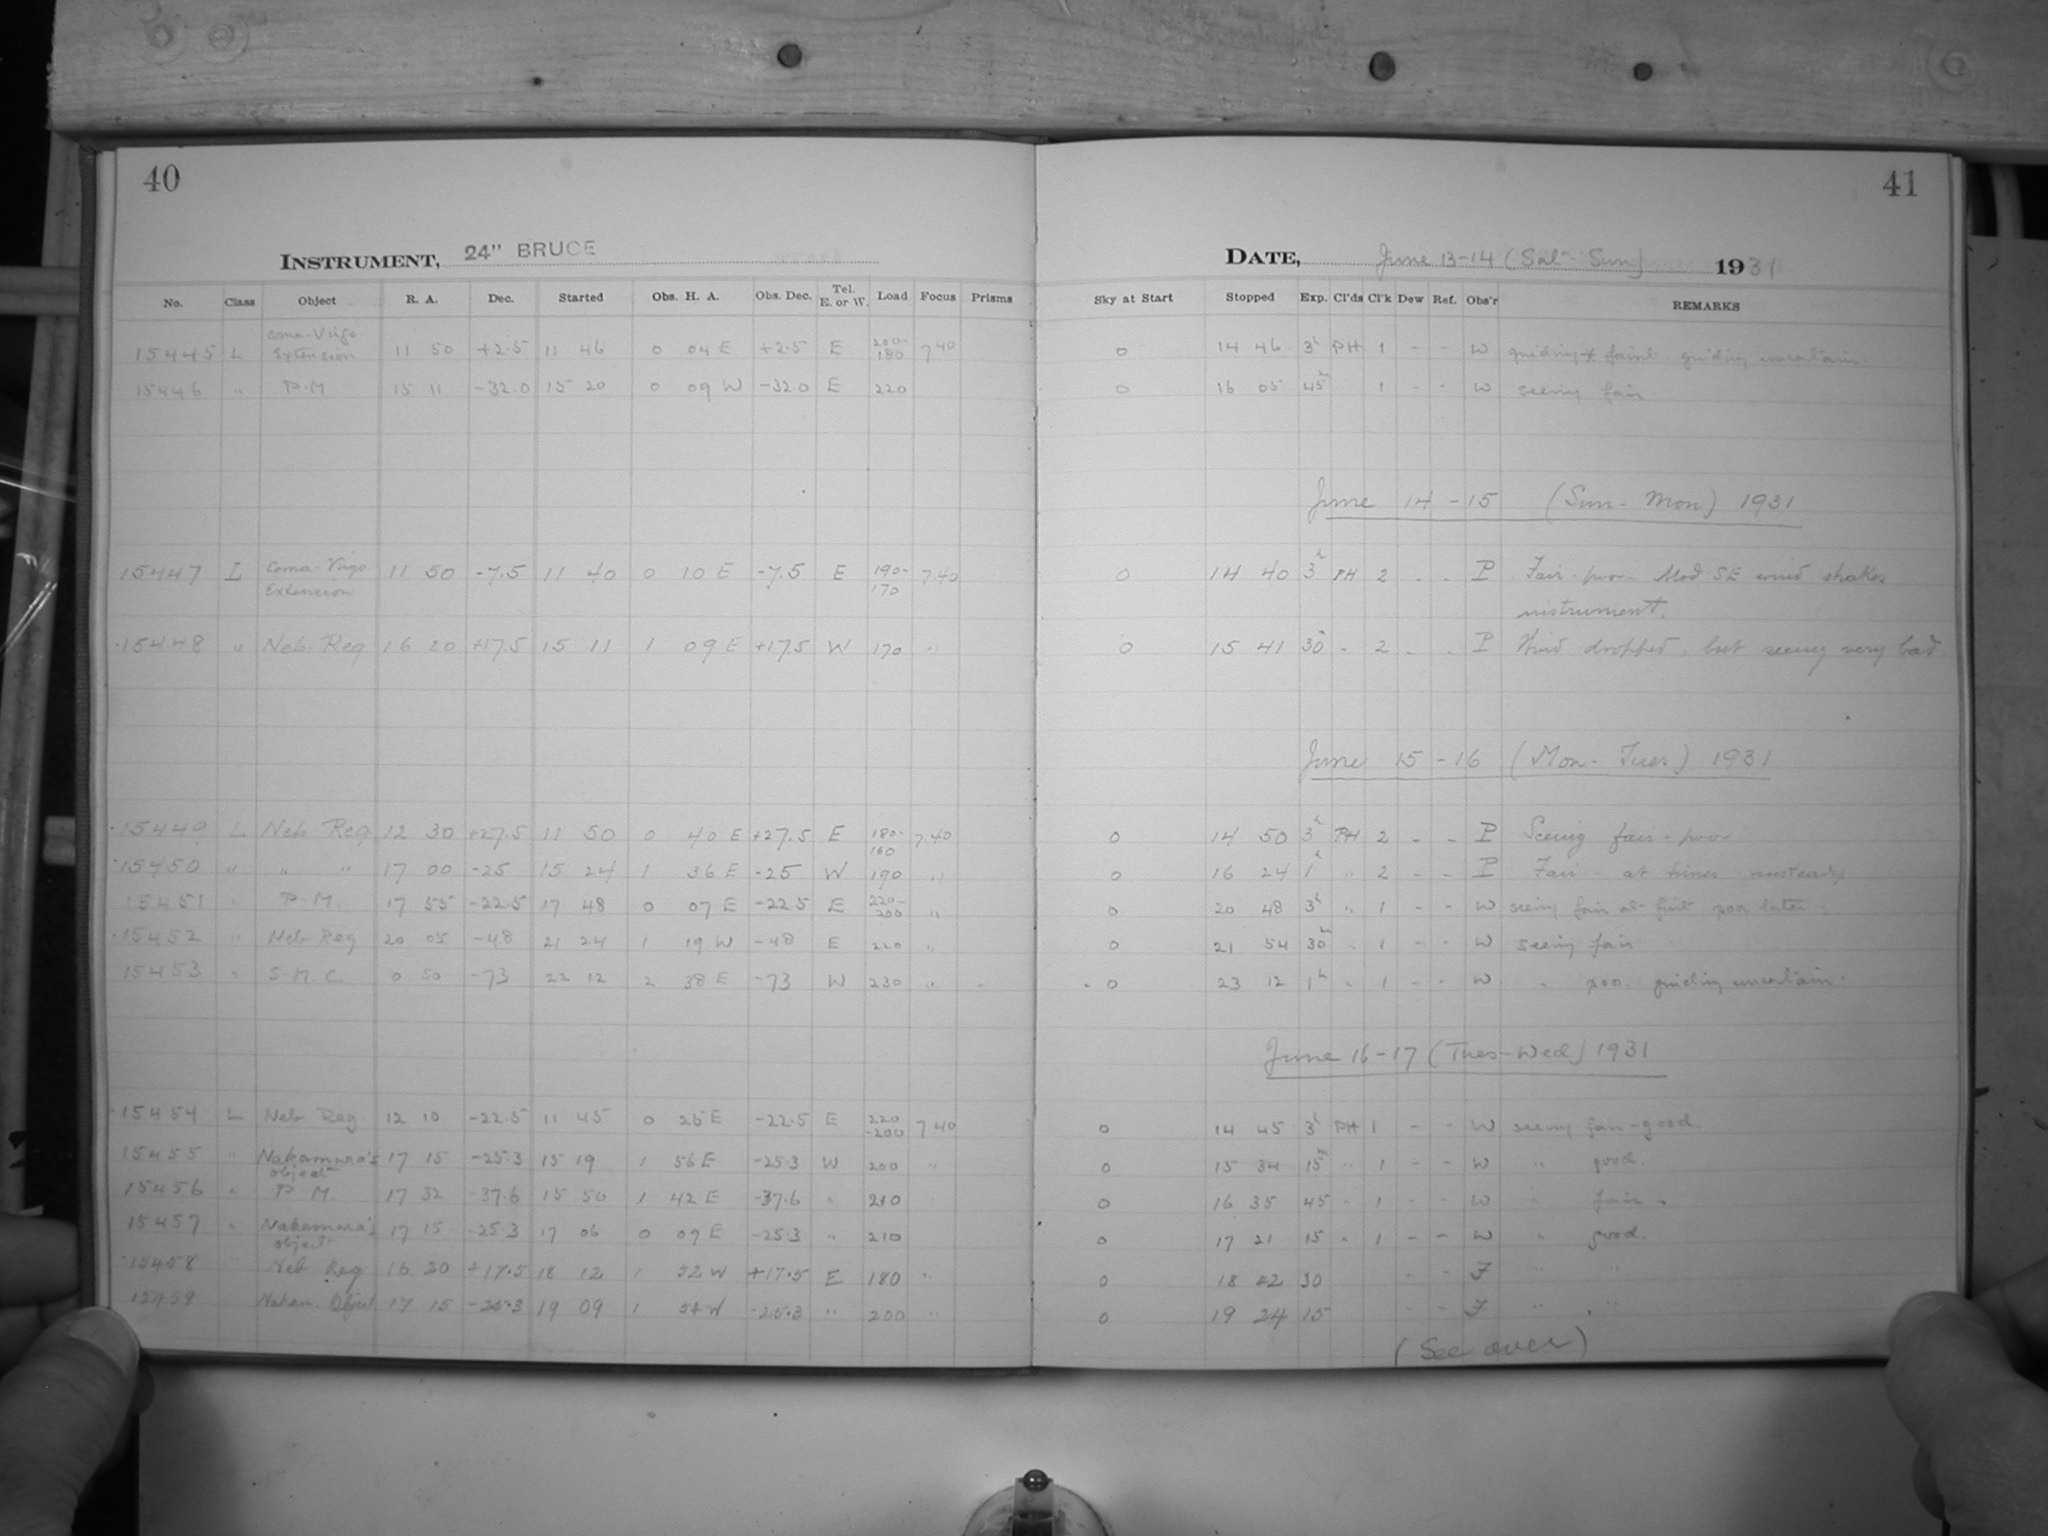 40
41
INSTRUMENT, 24" BRUCE
DATE, June 13-14 (Sat-Sun) 1931
No. Class Object R. A. Dec. Started Obs. H. A. Obs. Dec. Tel. E. or W. Load Focus Prisms Sky at Start Stopped Exp. Cl'ds Cl'k Dew Ref. Obs'r REMARKS
15445 L Coma-Virgo Extension 11 50 +2.5 11 46 0 04 E +2.5 E 200-180 7.40 0 14 46 3h PH 1 - - W guiding * faint. guiding uncertain.
15446 " P.M 15 11 -32.0 15 20 0 09 W -32.0 E 220 0 16 05 45m 1 - - W seeing fair.
June 14-15 (Sun-Mon) 1931
15447 L Coma-Virgo Extension 11 50 -7.5 11 40 0 10 E -7.5 E 190-170 7.40 0 14 40 3h PH 2 - - P Fair-poor Mod SE wind shakes
instrument.
15448 " Neb. Reg 16 20 +17.5 15 11 1 09 E +17.5 W 170 " 0 15 41 30m " 2 - - P Wind dropped, but seeing very bad.
June 15-16 (Mon-Tues) 1931
15449 L Neb Reg 12 30 +27.5 11 50 0 40 E +27.5 E 180-160 7.40 0 14 50 3h PH 2 - - P Seeing fair-poor
15450 " " " 17 00 -25 15 24 1 36 E -25 W 190 " 0 16 24 1h " 2 - - P Fair - at times unsteady
15451 " P.M. 17 55 -22.5 17 48 0 07 E -22.5 E 220-200 " 0 20 48 3h " 1 - - W seeing fair at first poor later.
15452 " Neb Reg 20 05 -48 21 24 1 19 W -48 E 220 " 0 21 54 30m " 1 - - W seeing fair
15453 " S.M.C. 0 50 -73 22 12 2 38 E -73 W 230 " 0 23 12 1h " 1 - - W " poor. guiding uncertain.
June 16-17 (Tues-Wed) 1931
15454 L Neb Reg 12 10 -22.5 11 45 0 25 E -22.5 E 220-200 7.40 0 14 45 3h PH 1 - - W seeing fair-good.
15455 " Nakamura's object 17 15 -25.3 15 19 1 56 E -25.3 W 200 " 0 15 34 15m " 1 - - W " good.
15456 " P.M. 17 32 -37.6 15 50 1 42 E -37.6 " 210 0 16 35 45 " 1 - - W " fair.
15457 " Nakamura's object 17 15 -25.3 17 06 0 09 E -25.3 " 210 0 17 21 15 " 1 - - W " good.
15458 " Neb Reg 16 20 +17.5 18 12 1 52 W +17.5 E 180 " 0 18 42 30 - - F " "
15459 Nakam. Object 17 15 -25.3 19 09 1 54 W -25.3 " 200 " 0 19 24 15 - - F " "
(See over)